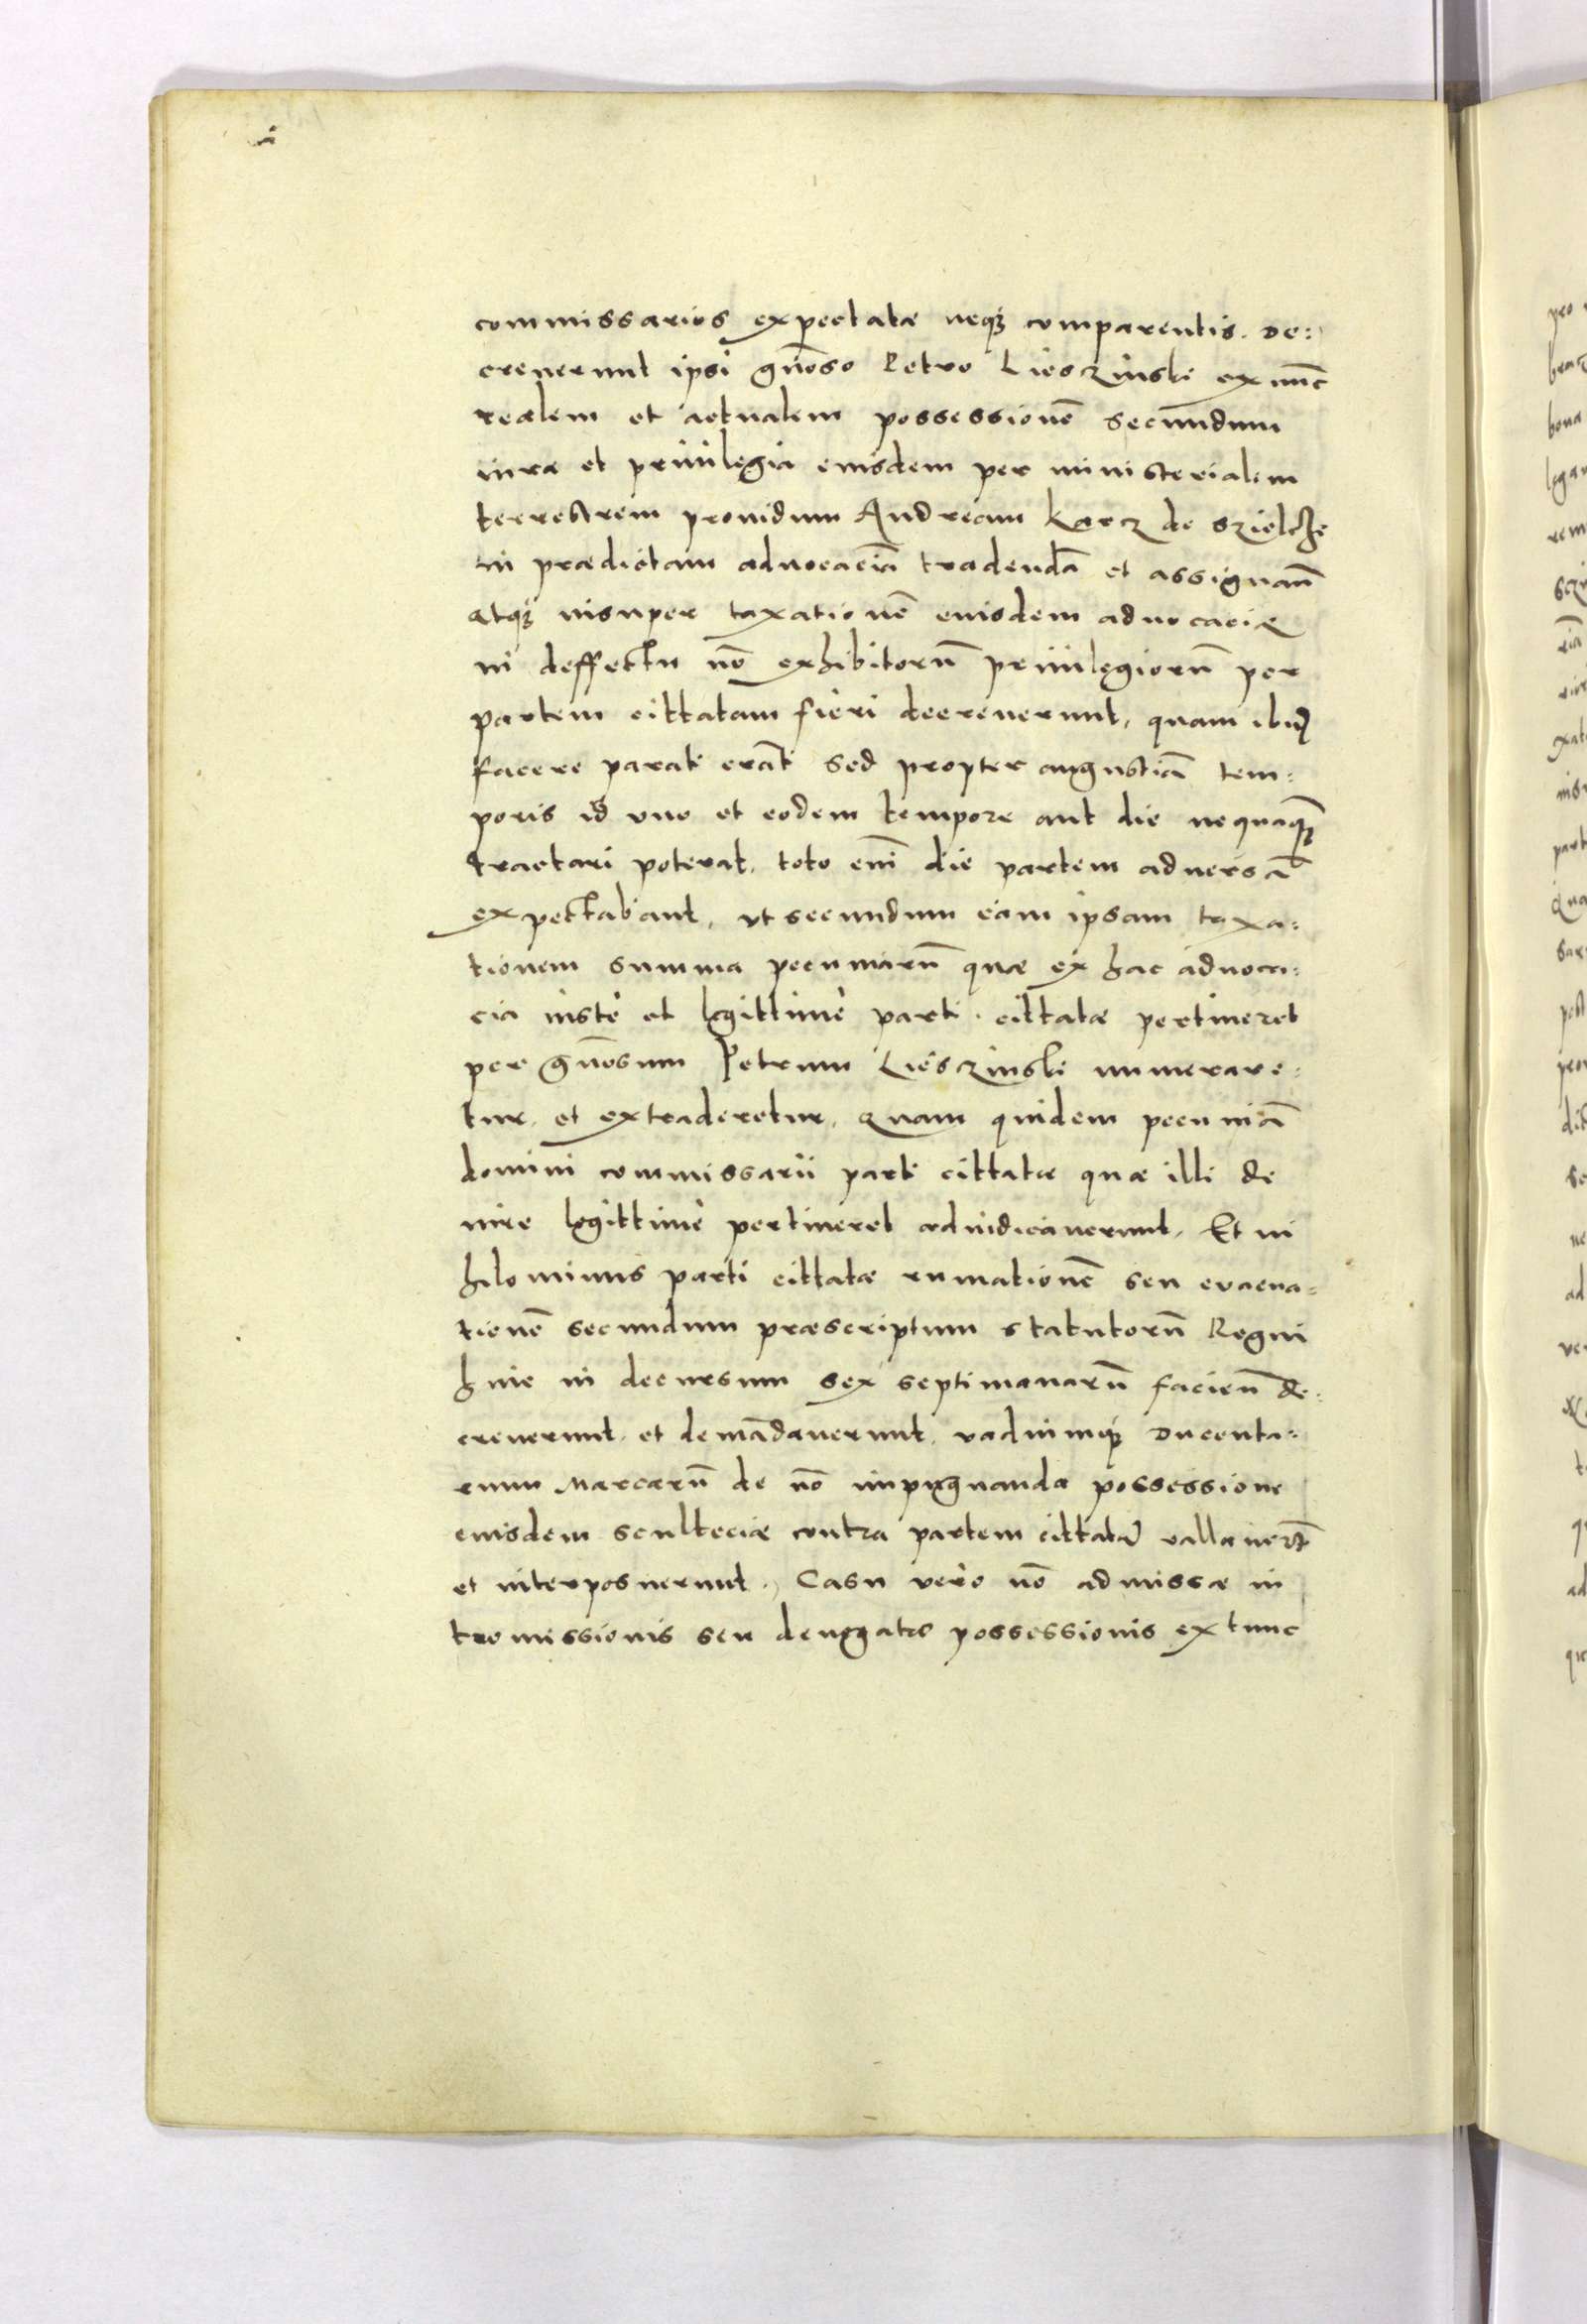 commissarios expectatæ neqȝ comparentis. de:
creuerunt ipsi gn̄oso Petro Liesczinski ex nūc
realem et actualem possessionē secundum
iura et priuilegia eiusdem per ministerialem
terrestrem prouidum Andream Karcz de
in prædictam aduocaciā tradendā et assignan̄
atqȝ insuper taxationē eiusdem aduocaciæ
in deffectu nō exhibitorū priuilegiorū per
partem cittatam fieri decreuerunt, quam ibid
facere parati erāt sed propter angustiā tem:
poris id uno et eodem tempore aut die nequaqȝ
tractari poterat, toto enī die partem aduersā
expectabant, ut secundum eam ipsam taxa:
tionem summa pecuniarū quæ ex hac aduoca:
cia iustè et legittimè parti cittatæ pertineret
per gn̄osum Petrum Liesczinski numerare:
tur, et extraderetur, quam quidem pecuniā
domini commissarii parti cittatæ quæ illi de
iure legittimè pertineret adiudicauerunt, Et ni
hilominus parti cittatæ rumationē seu euacua:
tionē secundum præscriptum statutorū Regni
hinc in decursum sex septimanarū facien̄ de:
creuerunt et demādauerunt, vadiumqȝ ducenta:
rum Marcarū de nō impugnanda possessione
eiusdem scultecia contra partem cittatā vallauerūt
et interposuerunt. Casu vero nō admissæ in
tromissionis seu denegatæ possessionis ex tunc